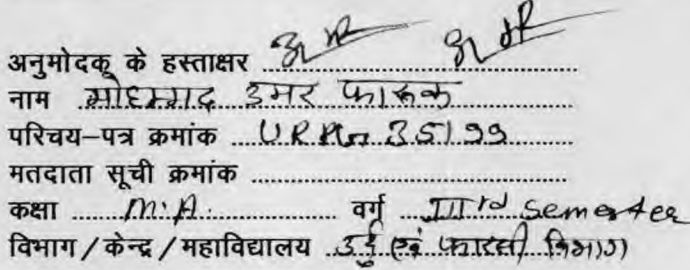 अनुमोदक के हस्ताक्षर
नाम मोहम्मद उमर फारूक
परिचय-पत्र क्रमांक
मतदाता सूची क्रमांक
कक्षा M.A. वर्ग IIIrd Semester
विभाग / केन्द्र / महाविद्यालय उर्दू एवं फारसी विभाग